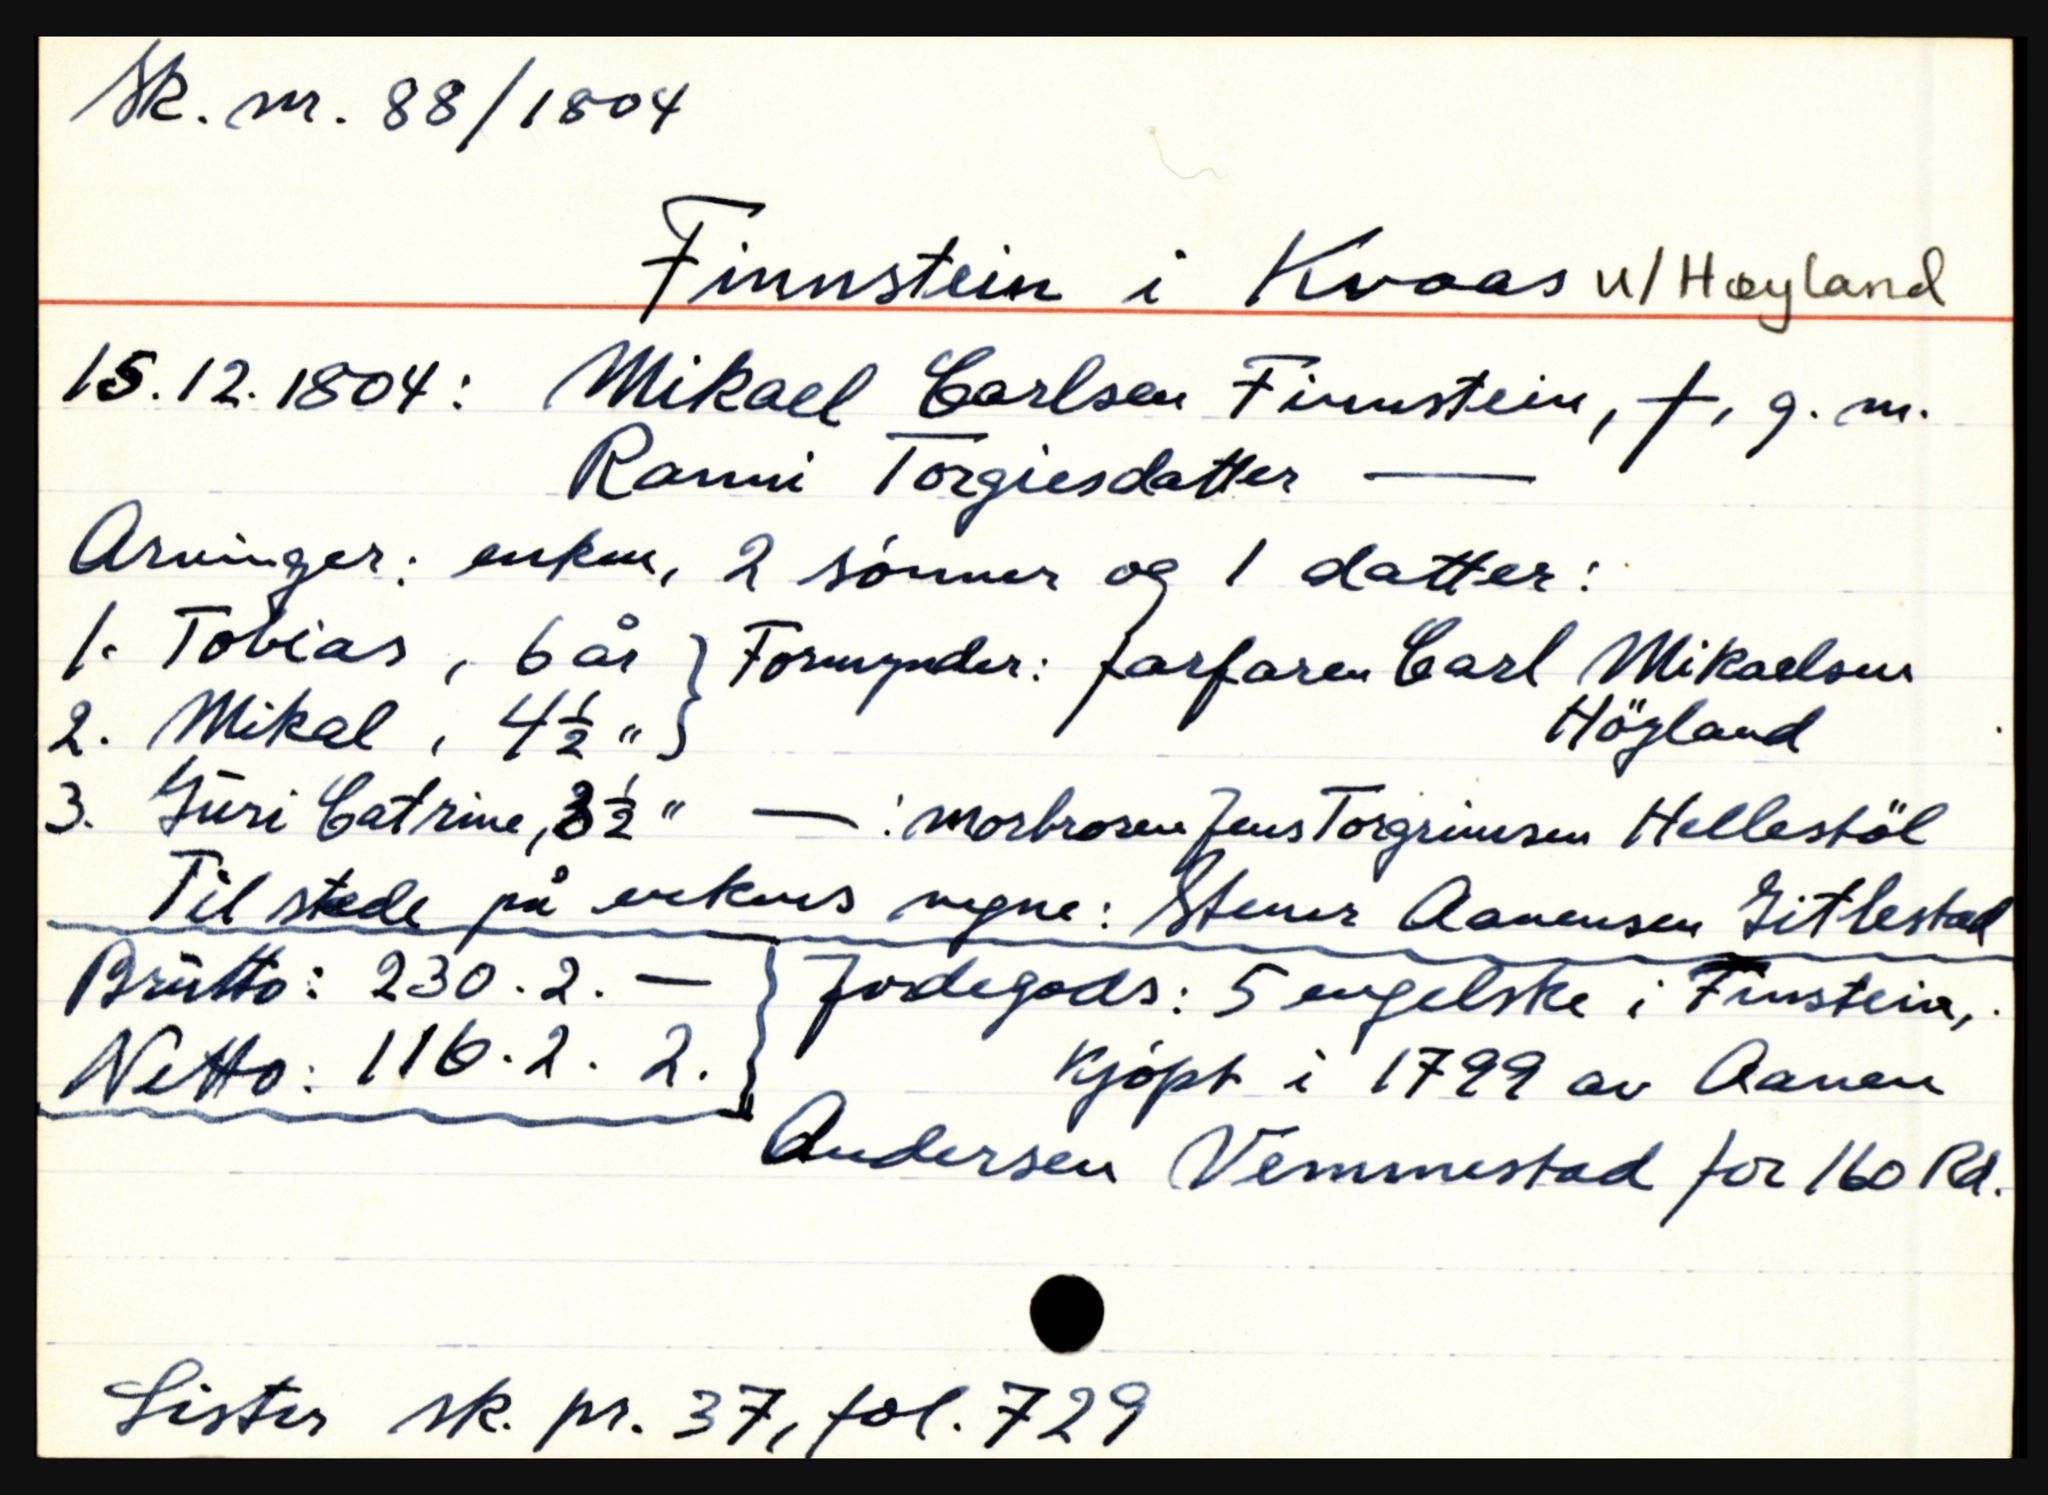 Sk. nr. 88/1804
Finnstein i Kvaas u/Høyland
15.12.1804: Mikael Carlsen Finnstein, †, g. m.
Ranni Torgiesdatter —
Arvinger: enken, 2 sønner og 1 datter:
1. Tobias, 6 år } Formynder: farfaren Carl Mikaelsen
2. Mikal, 4½ " } Höyland
3. Guri Catrine, 3½ " — : morbroren Jens Torgrimsen Hellestöl
Til stede på enkens vegne: Stener Aanensen Gitlestad
Brutto: 230. 2. — } Jordegods: 5 engelske i Finstein,
Netto: 116. 2. 2. } kjøpt i 1799 av Aanen
Andersen Vemmestad for 160 Rd.
Lister sk. pr. 37, fol. 729